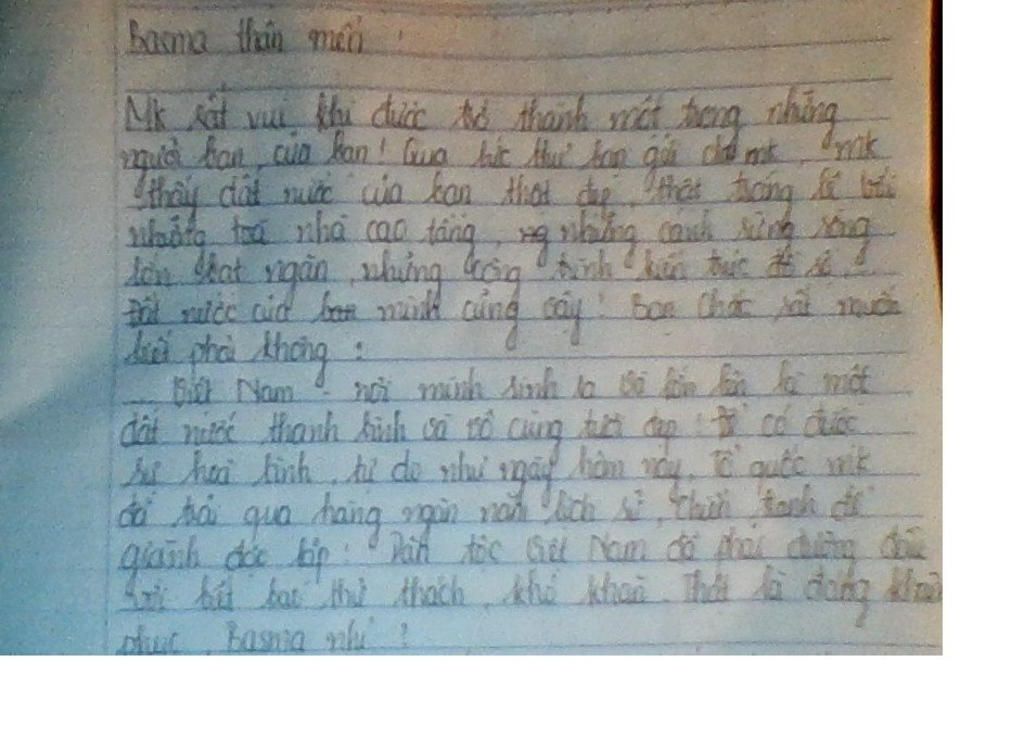 Basma thân mến !
Mk rất vui khi được trở thành một trong những
người bạn của bạn! Qua bức thư bạn gửi cho mk, mk
thấy đất nước của bạn thật đẹp, thật tráng lệ với
những toà nhà cao tầng, những cánh rừng rộng
lớn bạt ngàn, những công trình kiến trúc đồ sộ.
Đất nước của bạn mình cũng vậy! Bạn chắc rất muốn
biết phải không :
Việt Nam - nơi mình sinh ra và lớn lên là một
đất nước thanh bình và vô cùng tươi đẹp. Để có được
sự hoà bình, tự do như ngày hôm nay, Tổ quốc mk
đã trải qua hàng ngàn năm lịch sử, chiến tranh để
giành độc lập. Dân tộc Việt Nam đã phải đương đầu
với biết bao thử thách, khó khăn. Thật là đáng khâm
phục, Basma nhỉ ?